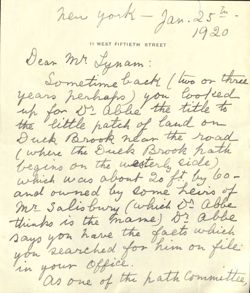 New York — Jan. 25th —
1920
11 WEST FIFTIETH STREET
Dear Mr Lynam:
Sometime back (two or three
years perhaps) you looked
up for Dr Abbe the title to
the little patch of land on
Duck Brook near the road
(where the Duck Brook path
begins on the westerly side)
which was about 20 ft by 60 —
and owned by some heirs of
Mr Salisbury (which Dr Abbe
thinks is the name) Dr Abbe
says you have the facts which
you searched for him on file
in your office.
As one of the path Committee